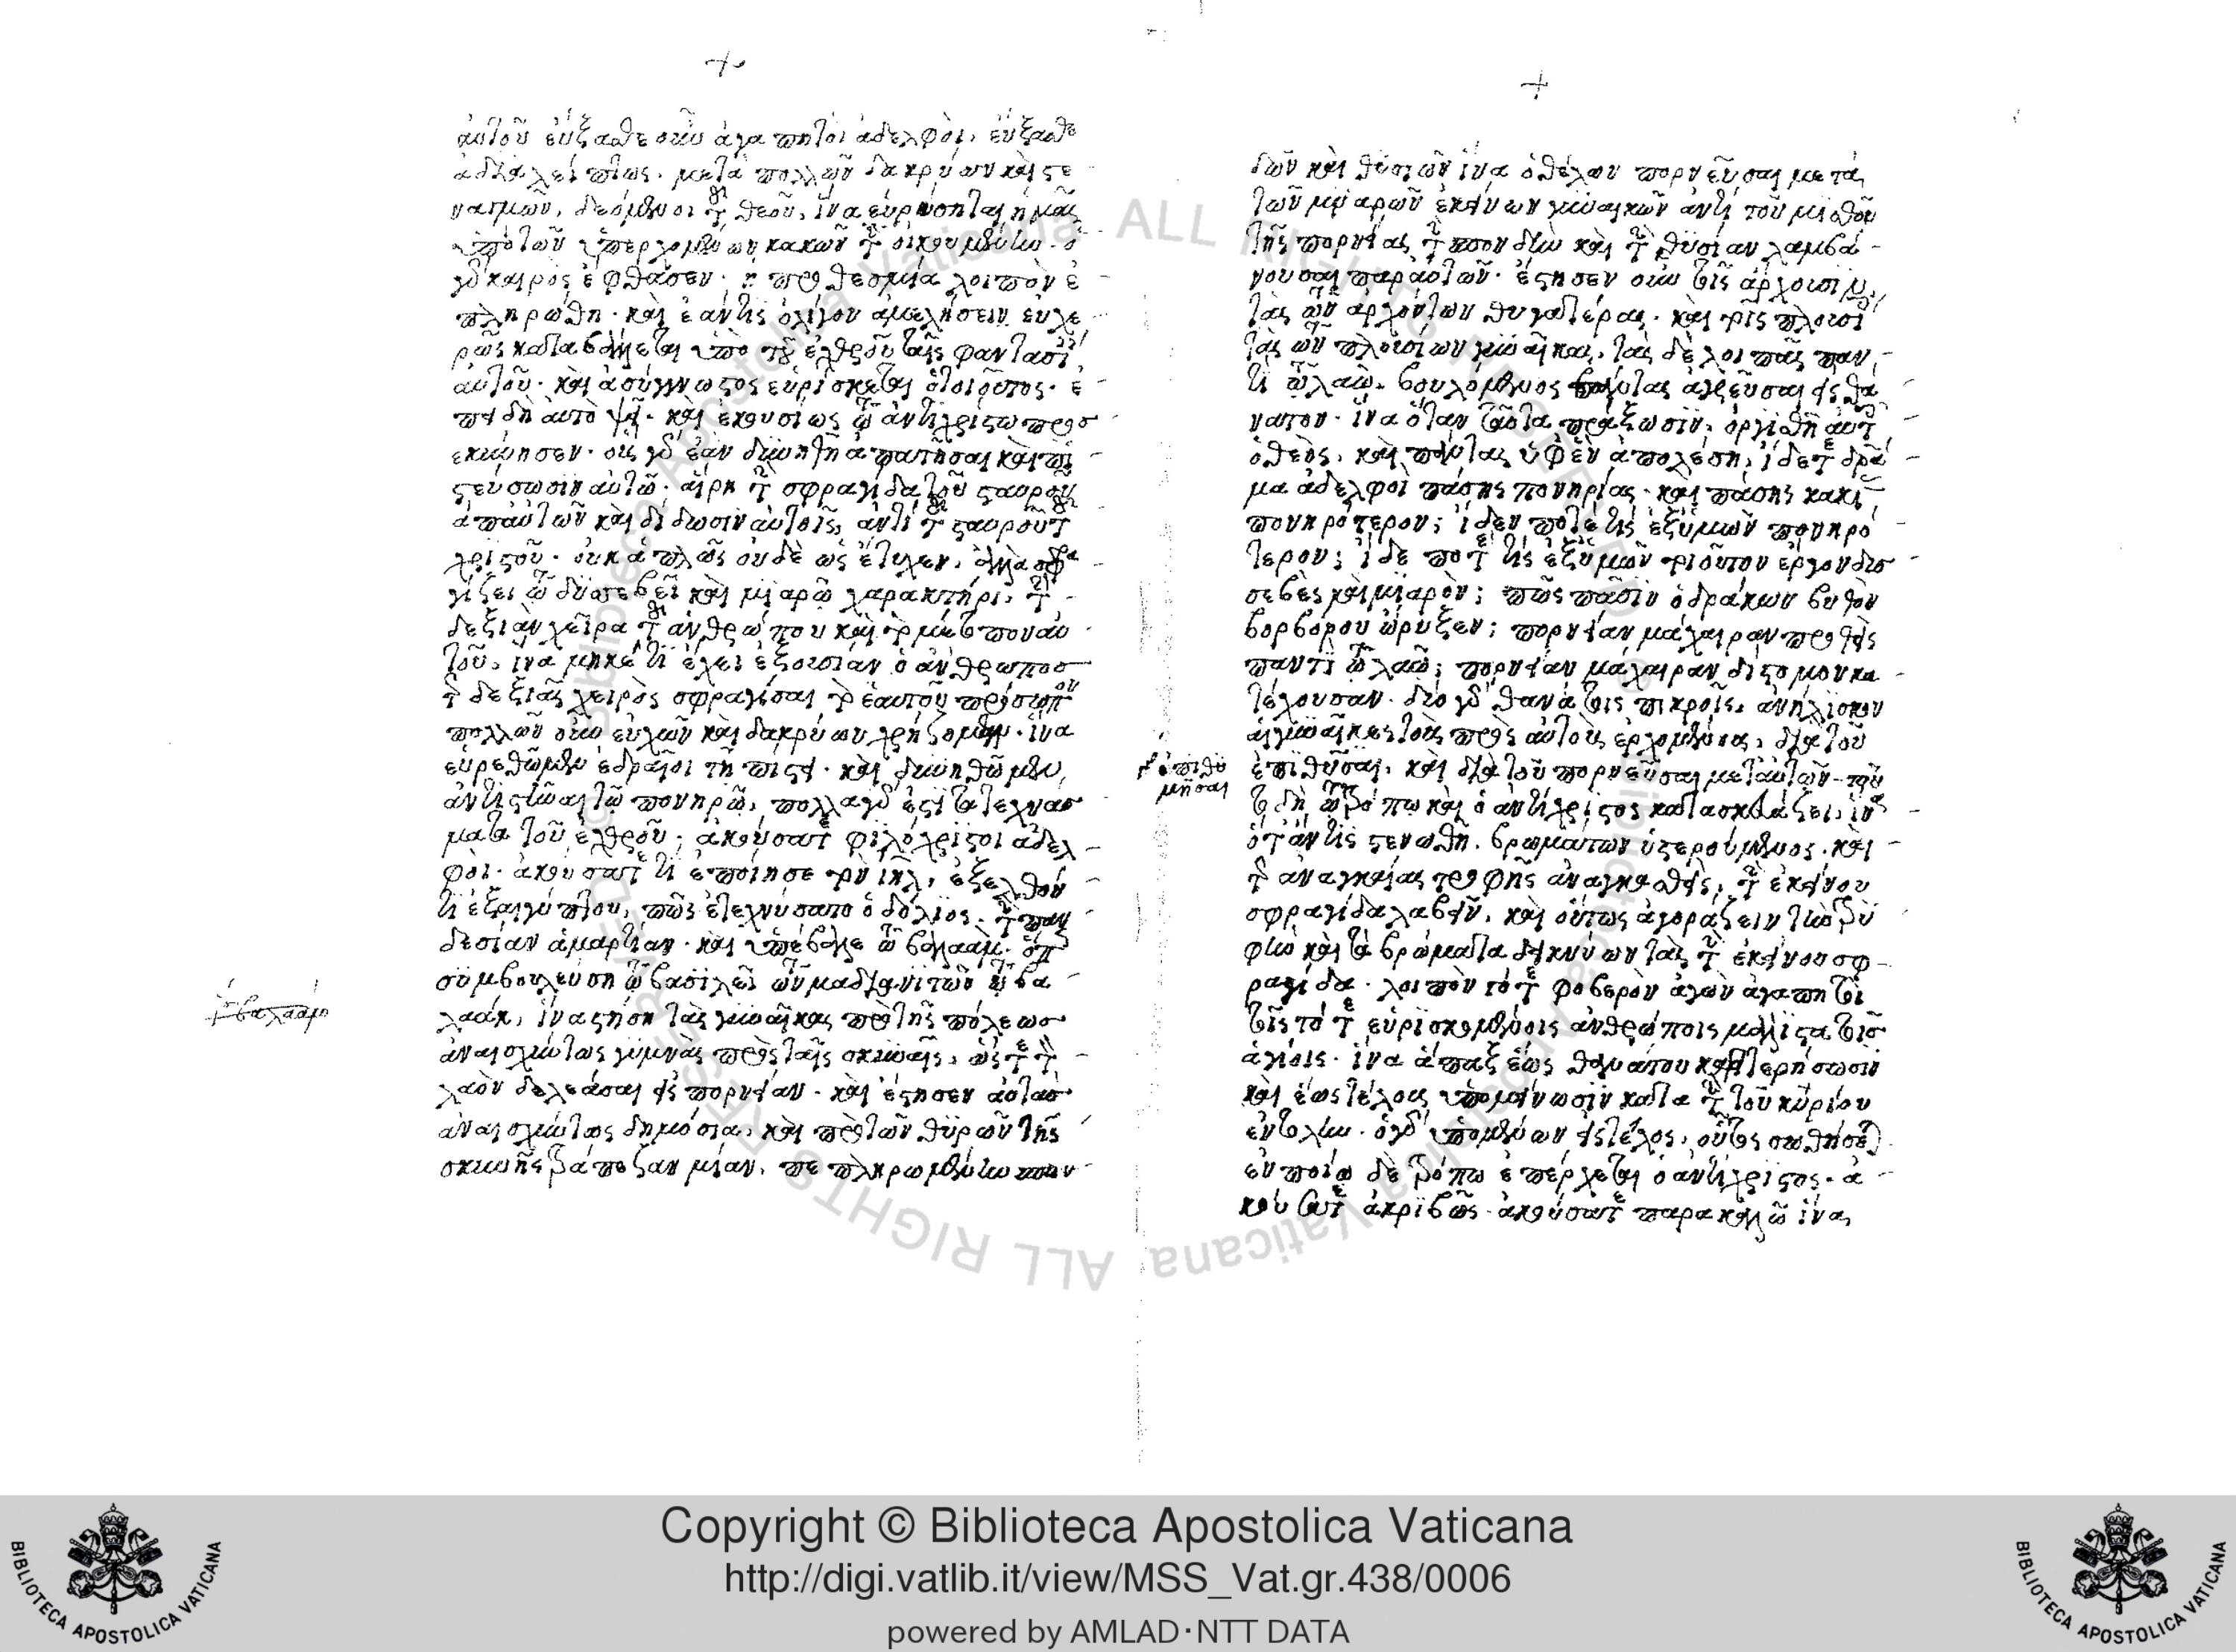 αὐτοῦ εὔξασθε οὖν ἀγαπητοὶ ἀδελφοὶ, εὔξασθε
ἀδιαλείπτως. μετὰ πολλῶν δακρύων καὶ στε
ναγμῶν, δεόμενοι τοῦ θεοῦ, ἵνα
ἀπὸ τῶν ἐπερχομένων κακῶν τῇ οἰκουμένῃ. ὁ
γὰρ καιρὸς ἔφθασεν. ἡ προθεσμία λοιπὸν ἐ
πληρώθη. καὶ ἐάν τις ὀλίγον ἀμελήσειν εὐχε
ρῶς καταβάλλεται ὑπὸ τοῦ ἐχθροῦ ταῖς φαντασί
αὐτοῦ. καὶ ἀσύγγνωστος εὑρίσκεται ὁ τοιοῦτος. ἐ
πειδὴ καὶ ἑκουσίως τῷ ἀντιχρίστῳ προσ
εκύνησεν. οὓς γὰρ ἐὰν δυνηθῇ ἀπατῆσαι καὶ πι
στεύσωσιν αὐτῷ. αἴρει τὴν σφραγίδα τοῦ σταυροῦ
ἀπ' αὐτῶν καὶ δίδωσιν αὐτοῖς, ἀντὶ τοῦ σταυροῦ τοῦ
χριστοῦ. οὐκ ἁπλῶς οὐδὲ ὡς ἔτυχεν, ἀλλὰ σφρα
γίζει τῷ δυσσεβεῖ καὶ μιαρῷ χαρακτῆρι, τὴν
δεξιὰν χεῖρα τοῦ ἀνθρώπου καὶ τὸ μέτωπον αὐ
τοῦ, ἵνα μηκέτι ἔχει ἐξουσίαν ὁ ἄνθρωπος
τῆς δεξιᾶς χειρὸς σφραγίσαι τὸ ἑαυτοῦ πρόσωπον
πολλῶν οὖν εὐχῶν καὶ δακρύων χρήζομεν. ἵνα
εὑρεθῶμεν ἑδραῖοι τῇ πίστει. καὶ δυνηθῶμεν,
ἀντιστῶαι τῷ πονηρῷ, πολλὰ γάρ ἐστι τὰ τεχνάσ
ματα τοῦ ἐχθροῦ. ἀκούσατε φιλόχριστοι ἀδελ
φοὶ. ἀκούσατε τί ἐποίησε τὸν ιηλ, ἐξελθόν
τι ἐξ αἰγύπτου, πῶς ἐτεχνάσατο ὁ δόλιος. τὴν παν
δεσίαν ἁμαρτίαν. καὶ ὑπέβαλε τῷ βαλαὰμ. ὅπως
συμβουλεύσῃ τῷ βασιλεῖ τῶν μαδιανιτῶν τῷ βα
λαάκ, ἵνα στήσῃ τὰς γυναῖκας πρὸ τῆς πόλεως
ἀναισχύντως γυμνὰς πρὸς ταῖς σκηναῖς, ὥστε τὸν
λαὸν δελεάσαι εἰς πορνείαν. καὶ ἔστησεν αὐτὰς
ἀναισχύντως δημόσια, καὶ πρὸ τῶν θυρῶν τῆς
σκηνῆς τράπεζαν μίαν, πεπληρωμένην σπον
δῶν καὶ θυσιῶν ἵνα ὁ θέλων πορνεῦσαι μετὰ
τῶν μιαρῶν ἐκείνων γυναικῶν ἀντὶ τοῦ μισθοῦ
τῆς πορνείας τὴν σπονδὴν καὶ τὴν θυσίαν λαμβά
νουσαι παρ' αὐτῶν. ἔστησεν οὖν τοῖς ἄρχουσι
τὰς τῶν ἀρχόντων θυγατέρας. καὶ τοῖς πλουσί
τὰς τῶν πλουσίων γυναῖκας, τὰς δὲ λοιπὰς παν
τὶ τῷ λαῷ. βουλόμενος πάντας ἀγρεῦσαι εἰς θά
νατον. ἵνα ὅταν ταῦτα πράξωσιν, ὀργισθῇ αὐτοῖς
ὁ θεὸς, καὶ πάντας ὑφ' ἓν ἀπολέσῃ, ἴδετε δρᾶ
μα ἀδελφοὶ πάσης πονηρίας. καὶ πάσης κακίας
πονηρότερον; ἴδεν ποτέ τις ἐξ ὑμῶν πονηρό
τερον; ἴδε ποτέ τις ἐξ ὑμῶν τοιοῦτον ἔργον δυσ
σεβὲς καὶ μιαρὸν; πῶς πᾶσιν ὁ δράκων βυθὸν
βορβόρου ὤρυξεν; πορνείαν μάχαιραν προθεὶς
παντὶ τῷ λαῷ; πορνείαν μάχαιραν δίστομον κα
τέχουσαν. διὸ γὰρ θανάτοις πικροῖς, ἀνήλισκον
αἱ γυναῖκες τοὺς πρὸς αὐτοὺς ἐρχομένους, διὰ τοῦ
ἐπιθῦσαι, καὶ διὰ τοῦ πορνεῦσαι μετ' αὐτῶν. τοι
τῳ δὴ τῷ τρόπῳ καὶ ὁ ἀντίχριστος κατασκευάζει, ἵνα
ὅτ' ἄν τις στενωθῇ, βρωμάτων ὑστερούμενος. καὶ
τῆς ἀναγκαίας τροφῆς ἀναγκασθεὶς, τὴν ἐκείνου
σφραγίδα λαβεῖν, καὶ οὕτως ἀγοράζειν τὴν τρο
φὴν καὶ τὰ βρώματα δεικνύων τὰς τὴν ἐκείνου σφ
ραγίδα. λοιπὸν τότε φοβερὸν ἀγὼν ἀγαπητοὶ
τοῖς τότε εὑρισκομένοις ἀνθρώποις μάλιστα τοῖς
ἁγίοις. ἵνα ἅπαξ ἕως θανάτου καρτερήσωσιν
καὶ ἕως τέλους ὑπομείνωσιν κατὰ τὴν τοῦ κυρίου
ἐντολὴν. ὁ γὰρ ὑπομένων εἰς τέλος, οὗτος σωθήσεται
ἐν ποίῳ δὲ τρόπῳ ἐπέρχεται ὁ ἀντίχριστος. ἀ
κούσατε ἀκριβῶς. ἀκούσατε παρακαλῶ ἵνα
ἐπιθυ
μῆσαι
βαλαὰμ
Biblioteca Apostolica Vaticana ALL RIGHTS RESERVED
Copyright © Biblioteca Apostolica Vaticana
http://digi.vatlib.it/view/MSS_Vat.gr.438/0006
powered by AMLAD·NTT DATA
BIBLIOTECA APOSTOLICA VATICANA
BIBLIOTECA APOSTOLICA VATICANA